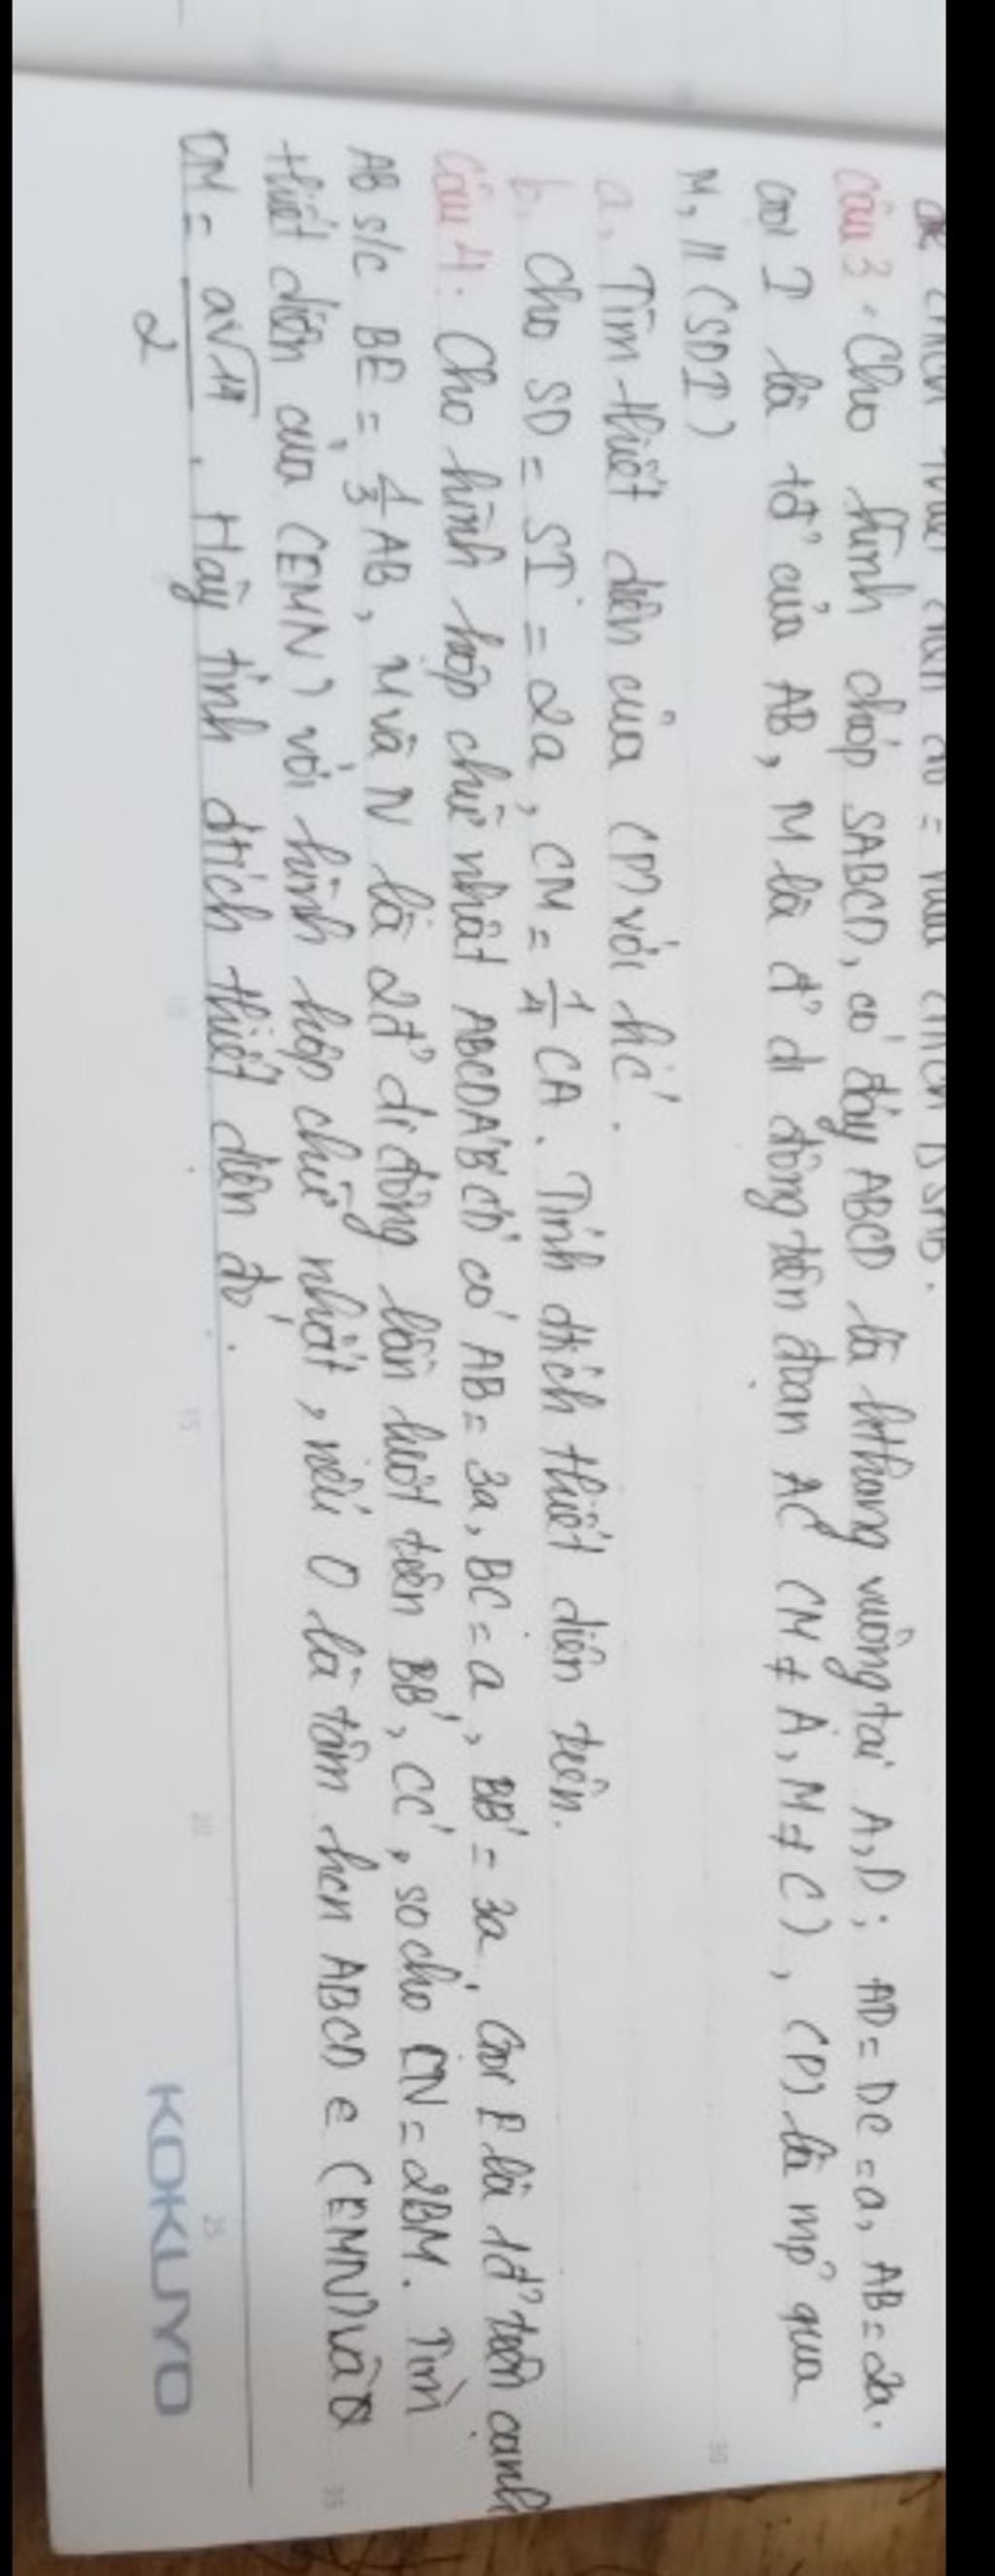 Câu 3. Cho hình chóp SABCD, có đáy ABCD là hthang vuông tại A, D; AD = DC = a, AB = 2a.
Gọi I là tđ' của AB, M là đ' di động trên đoạn AC (M ≠ A, M ≠ C), (P) là mp' qua
M, // (SDI)
a, Tìm thiết diện của (P) với h/c'.
b, Cho SD = SI = 2a, CM = 1/4 CA. Tính dtích thiết diện trên.
Câu 4. Cho hình hộp chữ nhật ABCDA'B'C'D' có AB = 3a, BC = a, BB' = 3a, Gọi E là 1đ' trên cạnh
AB s/c BE = 1/3 AB, M và N là 2đ' di động lần lượt trên BB', CC', so cho CN = 2BM. Tìm
thiết diện của (EMN) với hình hộp chữ nhật, nếu O là tâm hcn ABCD ∈ (EMN) và
OM = a√14/2. Hãy tính dtích thiết diện đó.
KOKUYO
15
20
25
35